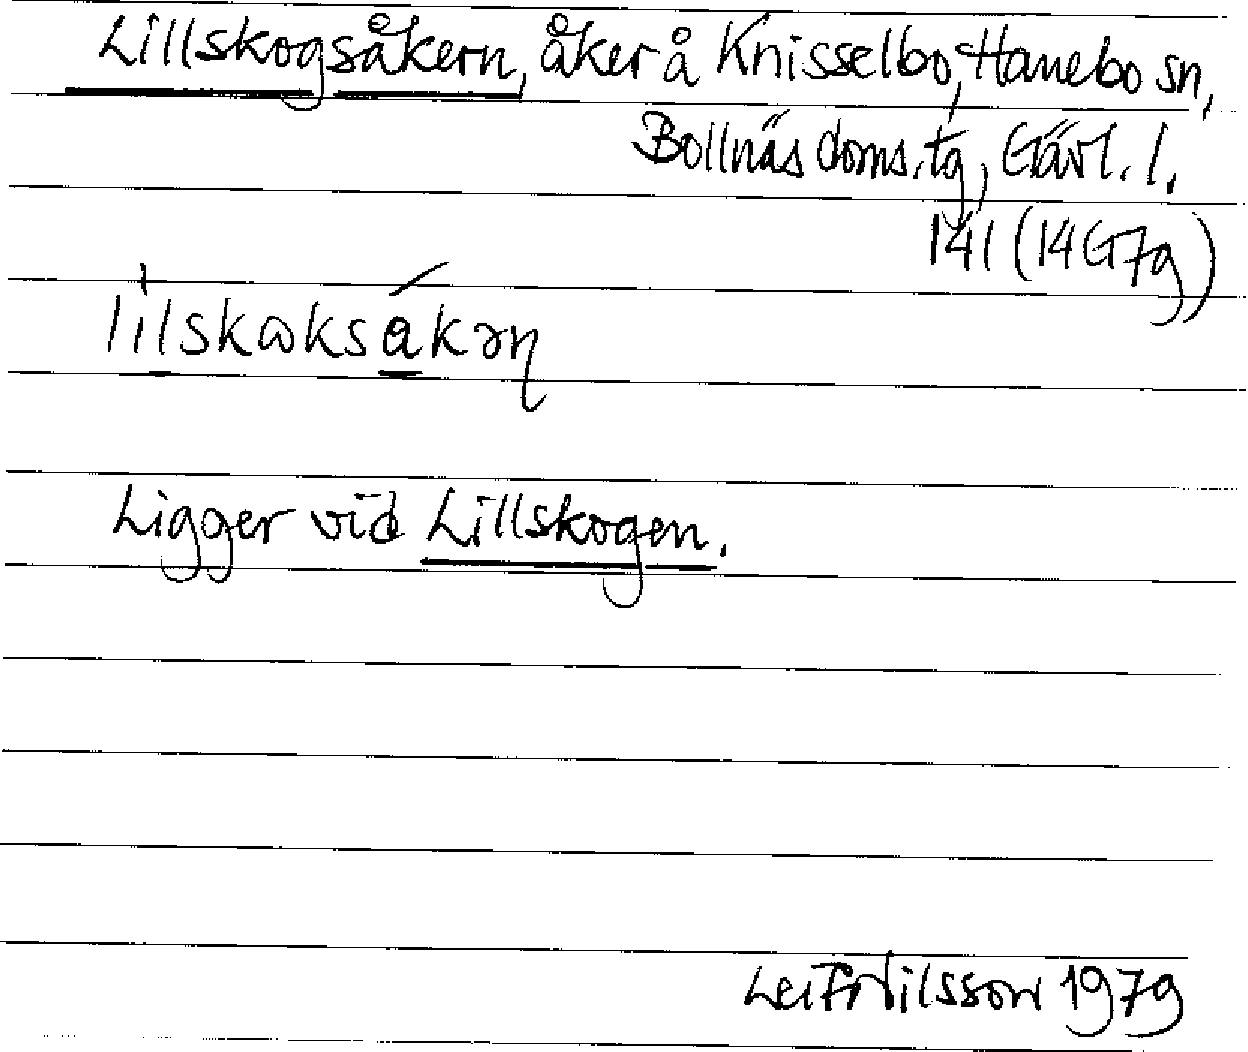 Lillskogsåkern, åker å Knisselbo, Hanebo sn,
Bollnäs doms.tg, Gävl. l.
141 (14G7g)
lilskɷksåkəɳ
Ligger vid Lillskogen.
Leif Nilsson 1979